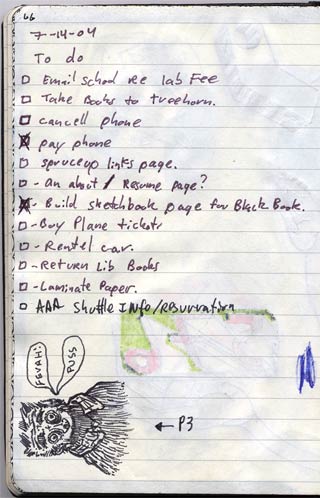 66
7-14-04
To do
Email school re lab Fee
Take Books to treehorn.
cancell phone
pay phone
spruceup links page.
- An about / Resume page?
- Build sketchbook page for Black Book.
- Buy Plane tickets
- Rental car.
- Return Lib Books
- Laminate Paper.
AAA Shuttle INFO/reservration
PUSS
← P3